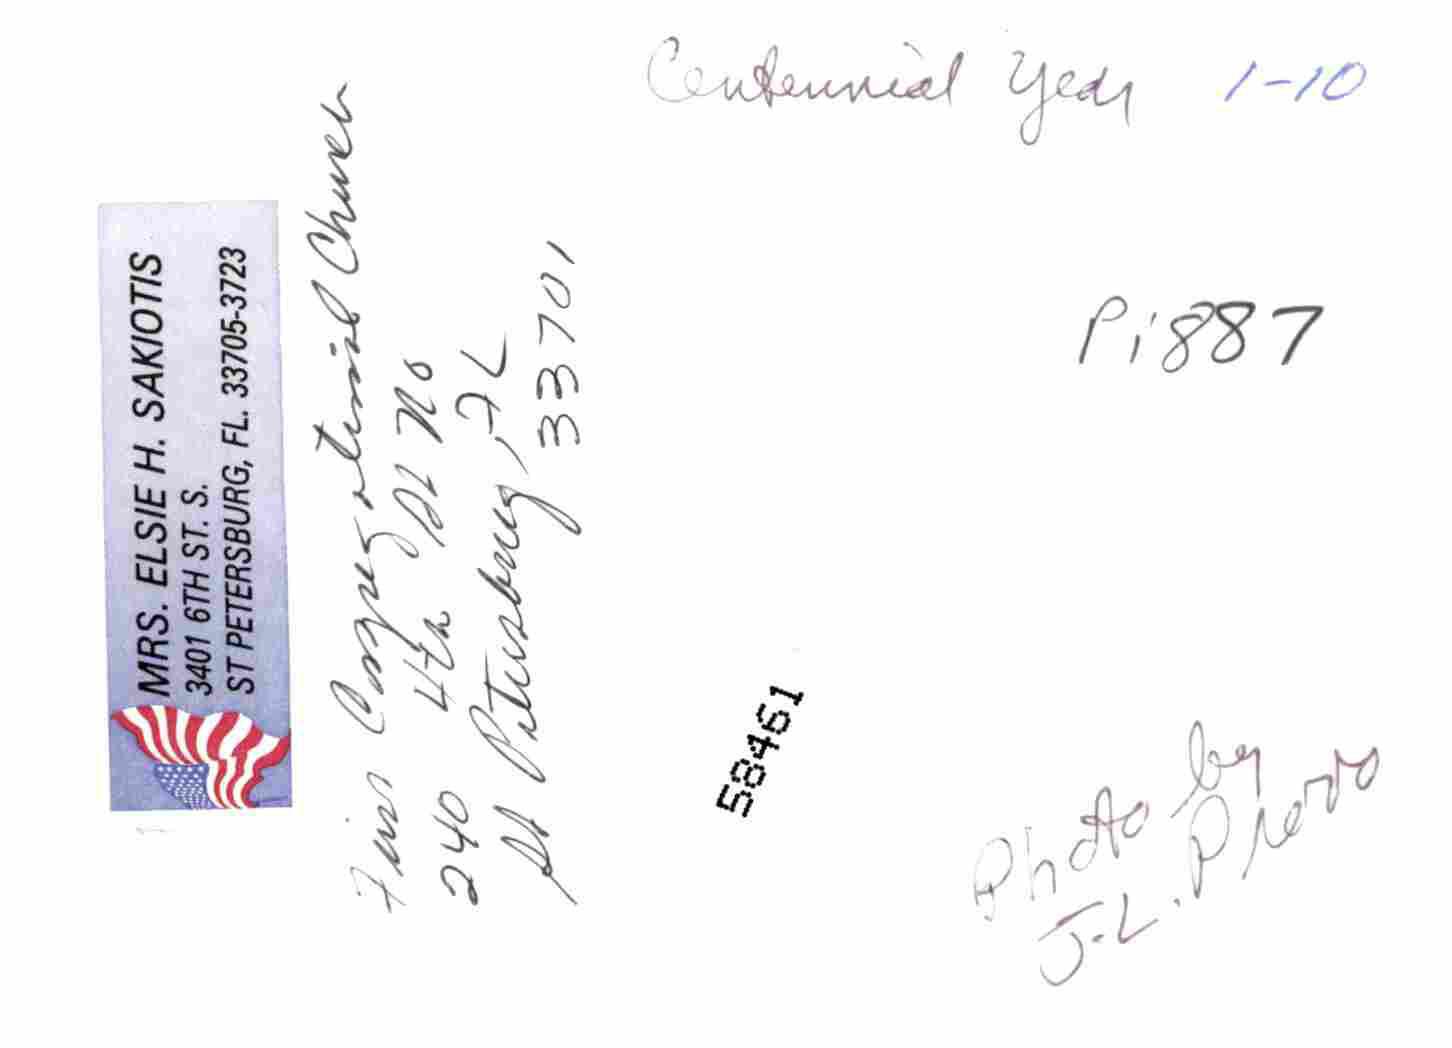 Centennial Year 1-10
MRS. ELSIE H. SAKIOTIS
3401 6TH ST. S.
ST PETERSBURG, FL. 33705-3723
First Congregational Church
240 4th St No
St Petersburg, FL
33701
Pi887
58461
Photo by
J.L. Provo